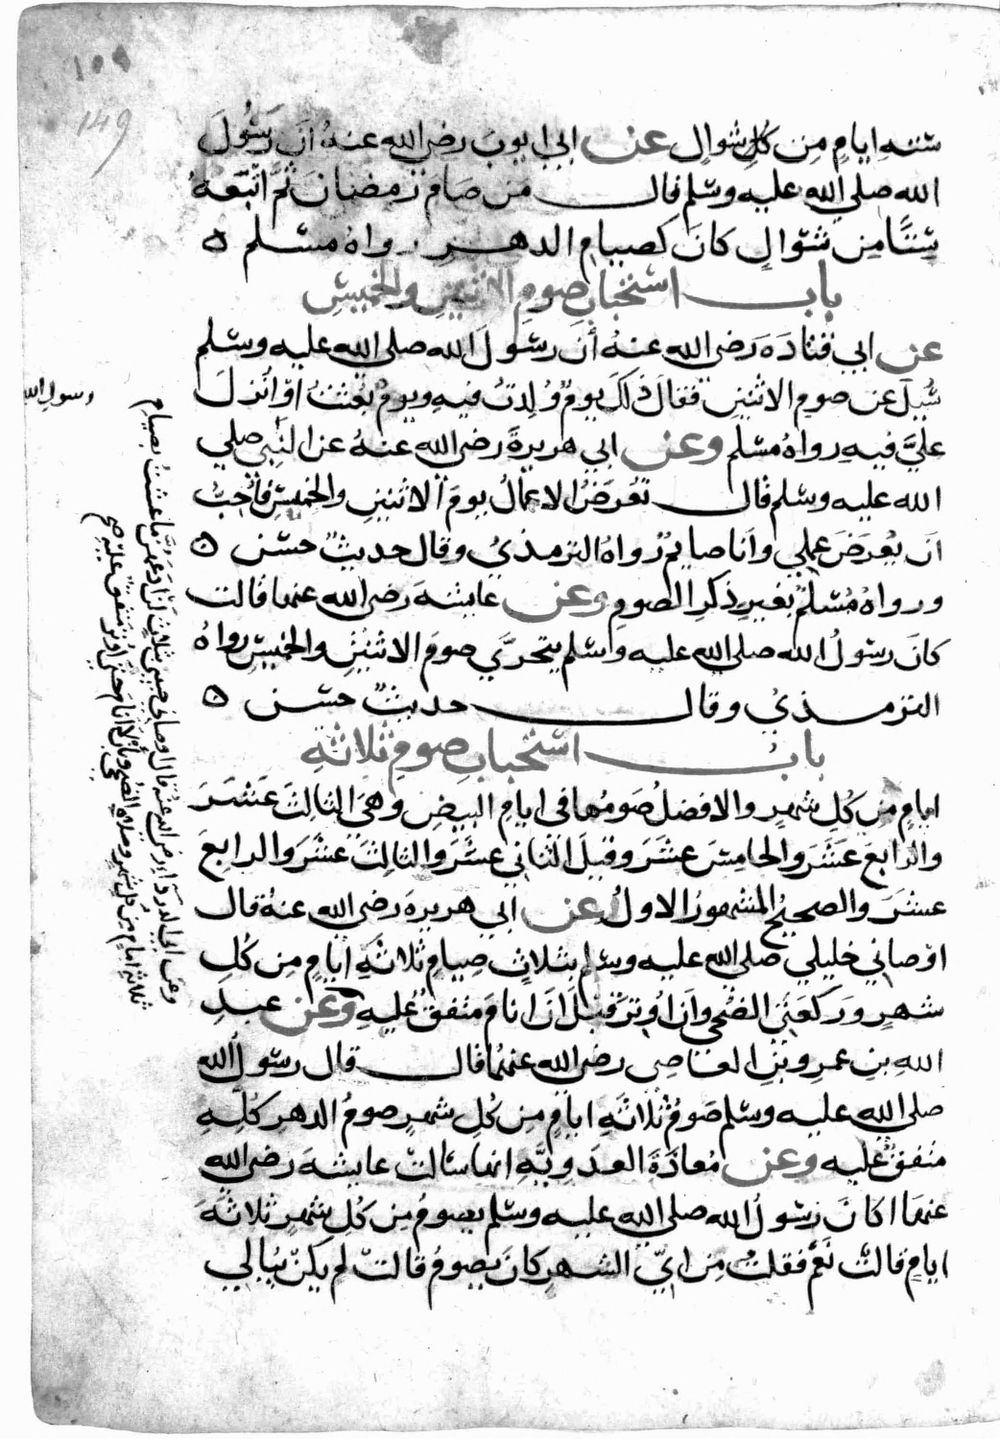 ١٥٩
149
ستة ايامٍ مِن كُلِّ شوالٍ عن ابي ايوبَ رضي الله عنهُ أنّ رَسُولَ
الله صلى الله عليه وسلم قال من صَامَ رَمَضان ثُمَّ اتْبَعَهُ
سِتًّا مِن شَوّالٍ كانَ كصيامِ الدهرِ رواهُ مسلم ه
باب استحباب صومِ الاثنين والخميس
عن ابي قتادَةَ رضي الله عنهُ أنَ رسُولَ الله صلى الله عليه وسلم
سُئِلَ عن صومِ الاثنين فقالَ ذلكَ يومٌ وُلِدتُ فيهِ ويومٌ بُعثتُ اوْ اُنزلَ
عليَّ فيهِ رواهُ مسلم وعن ابي هريرةَ رضي الله عنهُ عن النبيِ صلي
الله عليه وسلم قال تعُرَضُ الاعمالُ يومَ الاثنين والخميسِ فأُحِبُّ
ان يُعرَضَ عملي وأنا صايمٌ رواهُ الترمذيُ وقال حديثٌ حسَن ه
ورواهُ مُسْلمٌ بغيرِ ذكرِ الصومِ وعن عايشةَ رضي الله عنها قالت
كانَ رسُولُ الله صلى الله عليه وسلم يتحرَّي صومَ الاثنين والخميسِ رواهُ
الترمذيُ وقال حديثٌ حسَن ه
بابُ استحبابِ صومِ ثلاثةِ
ايامٍ مِن كُلِ شهرٍ والافضلُ صَومُها في ايامِ البيضِ وهيَ الثالثَ عَشَرَ
والرابعَ عشَرَ والخامسَ عشَرَ وقيلَ الثاني عشَرَ والثالثَ عشَرَ والرابعَ
عشرَ والصحيحُ المشهورُ الاولُ عن ابي هريرةَ رضي الله عنهُ قال
اوْصاني خليلي صلى الله عليه وسلم بثلاثٍ صيامِ ثلاثةِ ايامٍ مِن كُلِ
شهرٍ ورَكعتَي الضُحى وأنْ اوتِرَ قبلَ انْ انامَ متفقٌ عليهِ وعن عبدِ
اللهِ بنِ عمرِو بنِ العاصِ رضي الله عنهُما قال قال رسُولُ الله
صلى الله عليه وسلم صَومُ ثلاثةِ ايامٍ مِن كُلِ شهرٍ صومُ الدهرِ كُلِّهِ
متفقٌ عليه وعن مُعاذَةَ العدَوِيَّةِ انها سَالتْ عايشةَ رضي الله
عنهَا اكانَ رسُولُ الله صلى الله عليه وسلم يصومُ مِن كُلِ شهرٍ ثلاثةَ
ايامٍ قالتْ نَعَم فقلتُ مِن ايِّ الشهرِ كانَ يصومُ قالتْ لم يكنْ يُبالي
وعن ابي الدرداءِ رضي الله عنهُ قال اوصاني حبيبي بثلاثٍ لن ادَعهنَّ ما عشتُ بصيامِ
ثلاثةِ ايامٍ مِن كُل شهرٍ وصلاةِ الضُحى وبأنْ لا انامَ حتى اوتر
رسول الله